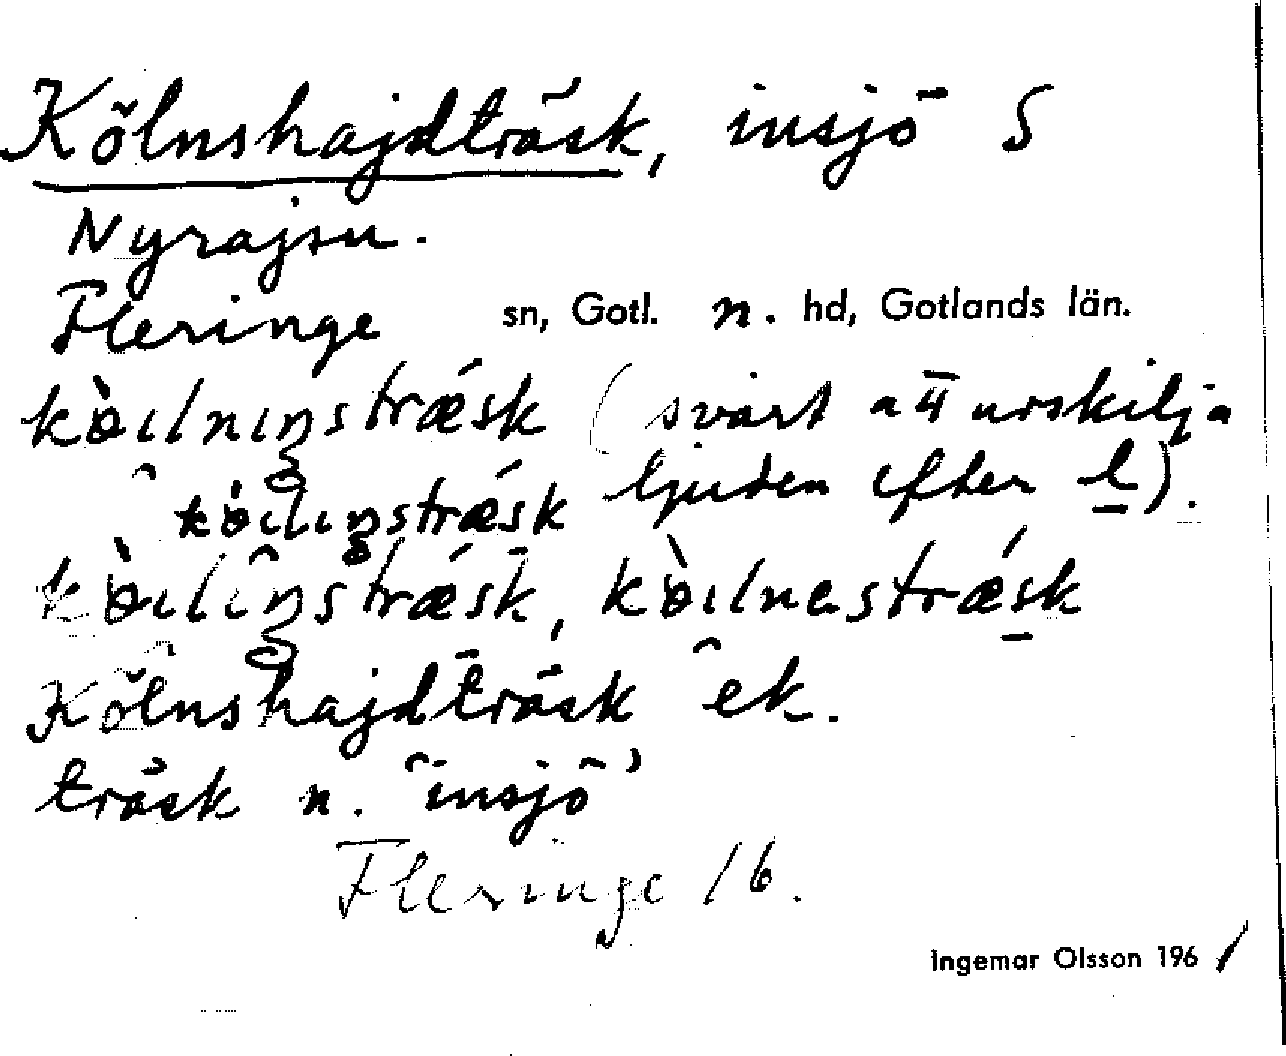 Kölnshajdträsk, insjö S
Nyrajsu.
Fleringe sn, Gotl. n. hd, Gotlands län.
kòılnıŋstrǽsk (svårt att urskilja
kòılıŋstrǽsk ljuden efter l).
kòılıŋstrǽsk, kòılnɐstrǽsk
Kölnshajdträsk ek.
träsk n. 'insjö'
Fleringe 16.
Ingemar Olsson 1961